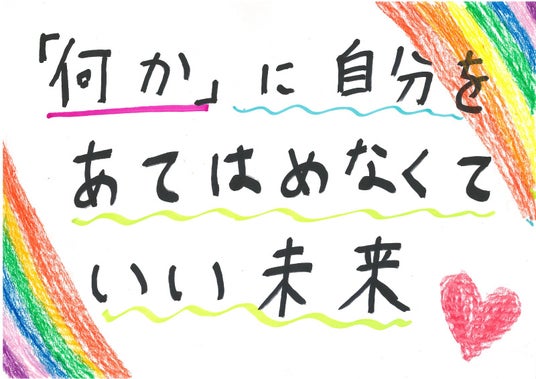 「何か」に自分を
あてはめなくて
いい未来